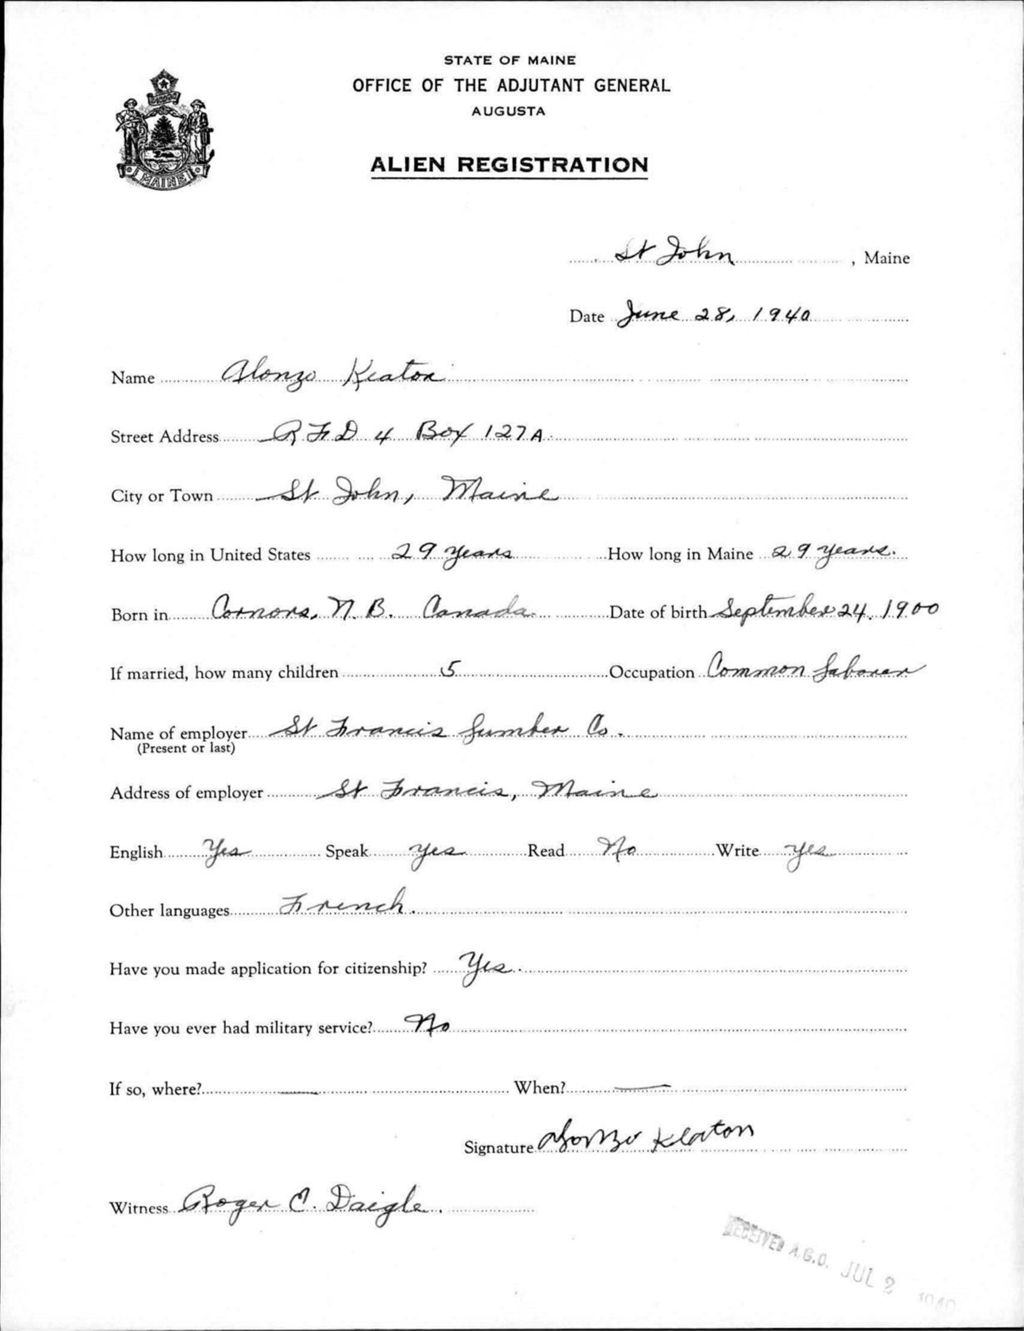 STATE OF MAINE
OFFICE OF THE ADJUTANT GENERAL
AUGUSTA
ALIEN REGISTRATION
MAINE
St John, Maine
Date June 28, 1940
Name Alonzo Keaton
Street Address R F D 4 Box 127A
City or Town St John, Maine
How long in United States 29 years How long in Maine 29 years.
Born in Connors, N. B. Canada Date of birth September 24, 1900
If married, how many children 5 Occupation Common Laborer
Name of employer St Francis Lumber Co.
(Present or last)
Address of employer St Francis, Maine
English Yes Speak yes Read No Write yes
Other languages French.
Have you made application for citizenship? Yes.
Have you ever had military service? No
If so, where? — When? —
Signature Alonzo Keaton
Witness Roger C. Daigle.
RECEIVED A.G.O. JUL 2 1940